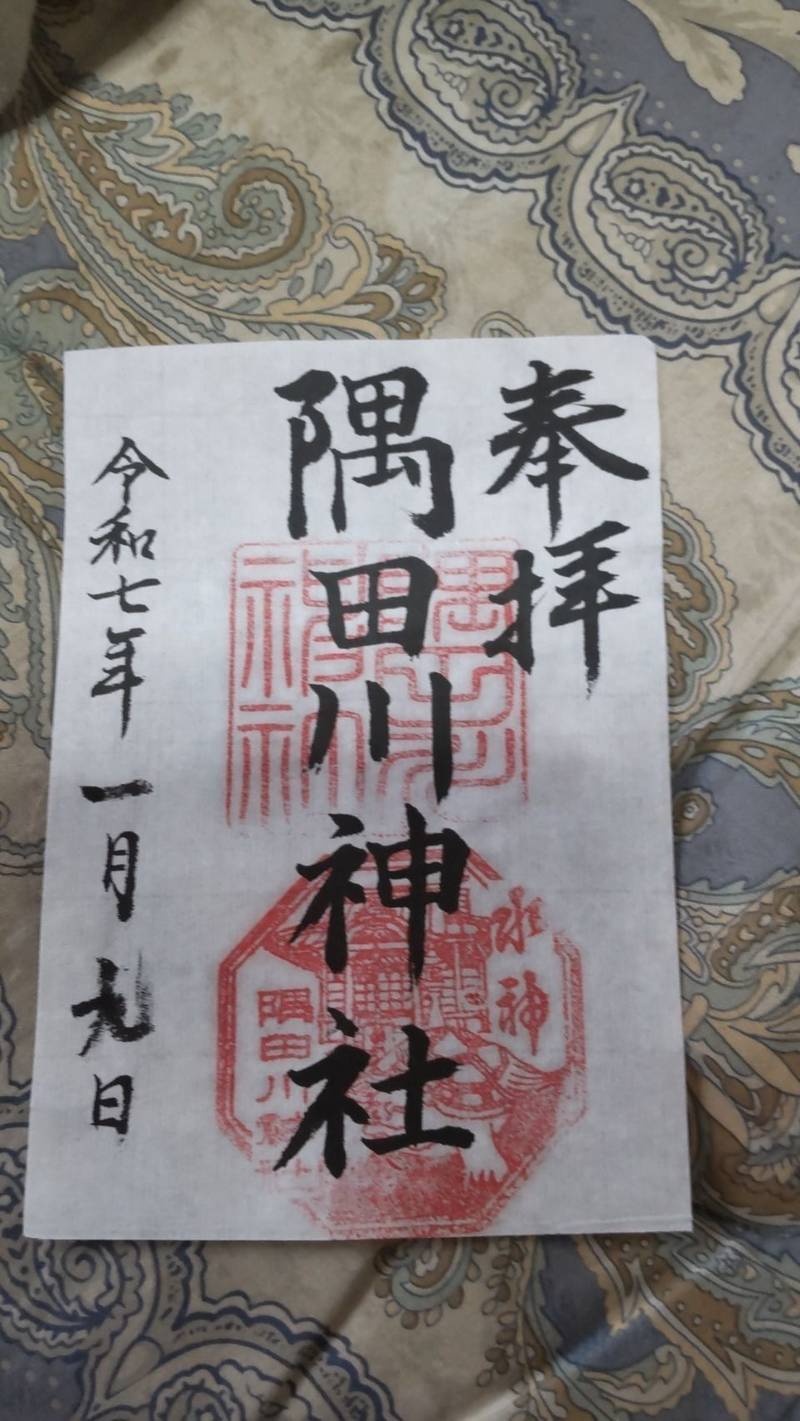 奉拝
隅田川神社
水神
隅田川神社
令和七年一月九日